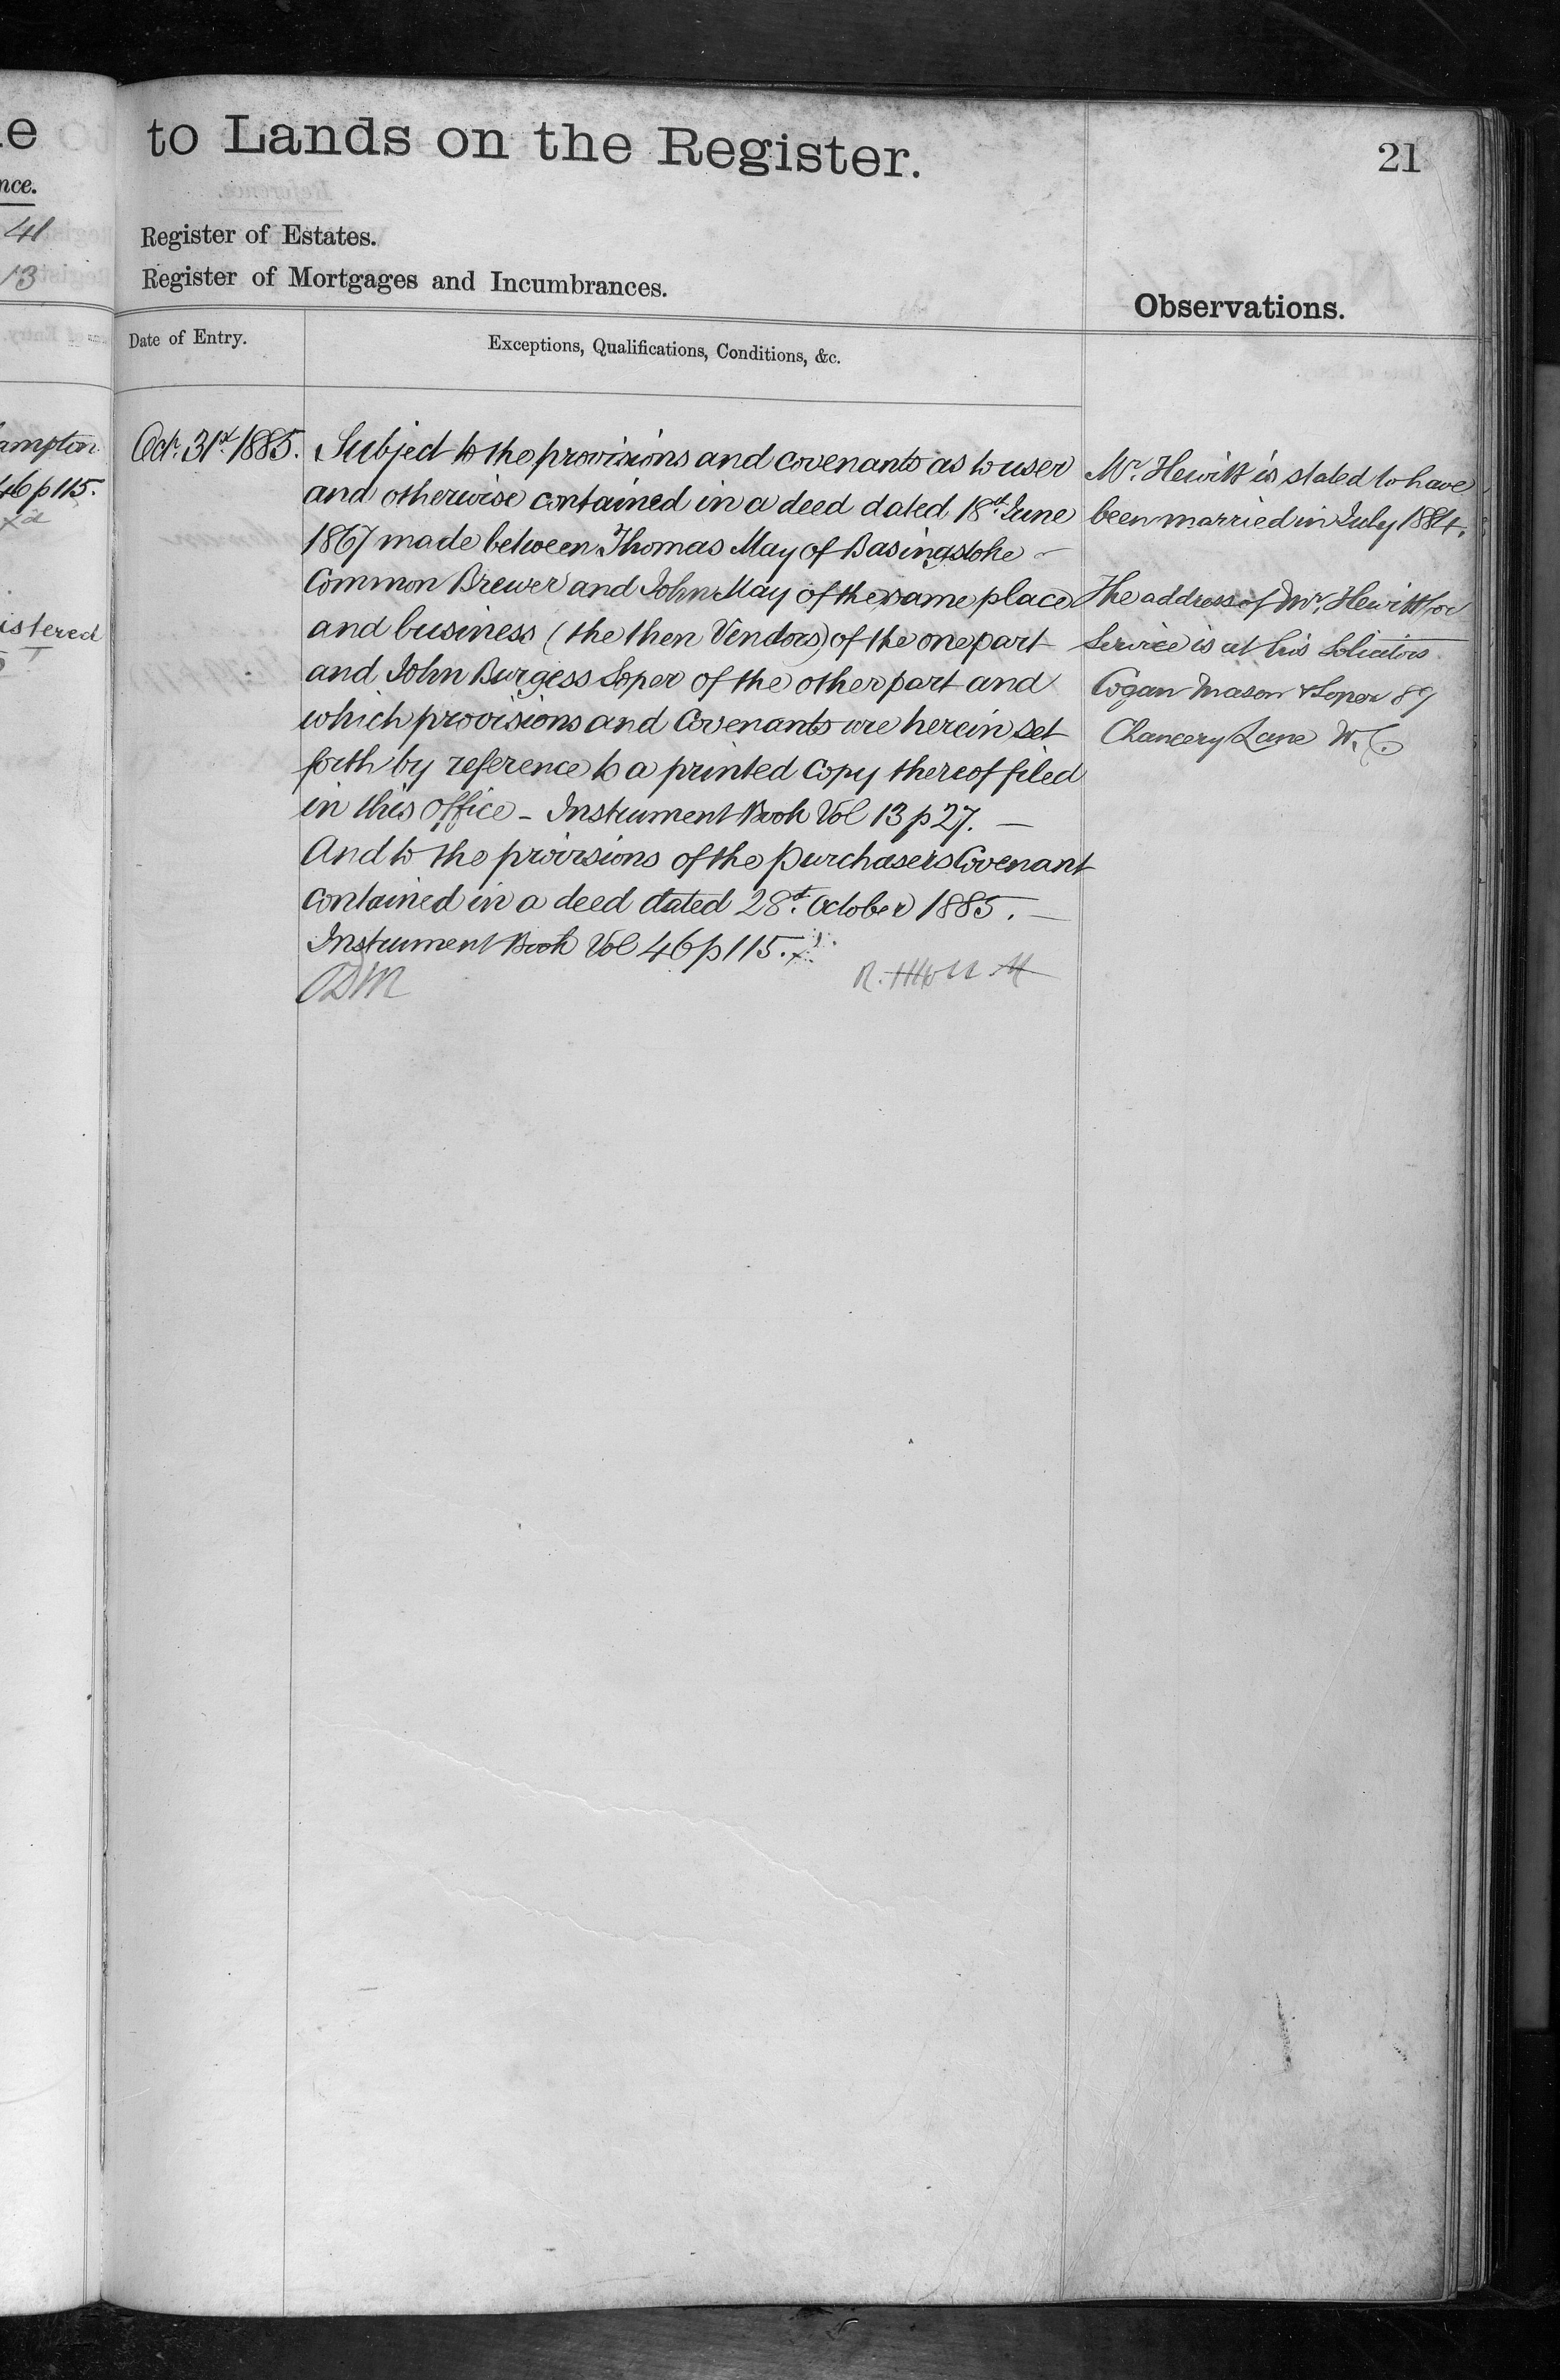 e
nce.
41
13
ampton
46 p 115.
istered
to Lands on the Register.
21
Register of Estates.
Register of Mortgages and Incumbrances.
Observations.
Date of Entry.
Exceptions, Qualifications, Conditions, &c.
Octr. 31st 1885.
Subject to the provisions and covenants as to user
and otherwise contained in a deed dated 18th June
1867 made between Thomas May of Basingstoke
Common Brewer and John May of the same place
and business (the then Vendors) of the one part
and John Burgess Soper of the other part and
which provisions and Covenants are herein set
forth by reference to a printed Copy thereof filed
in this Office - Instrument Book Vol 13 p 27. —
And to the provisions of the purchasers Covenant
contained in a deed dated 28th October 1885. —
Instrument Book Vol 46 p 115.
Mr. Hewitt is stated to have
been married in July 1884.
The address of Mr Hewitt for
Service is at his Solicitors
Cogan Mason & Soper 89
Chancery Lane W.C.